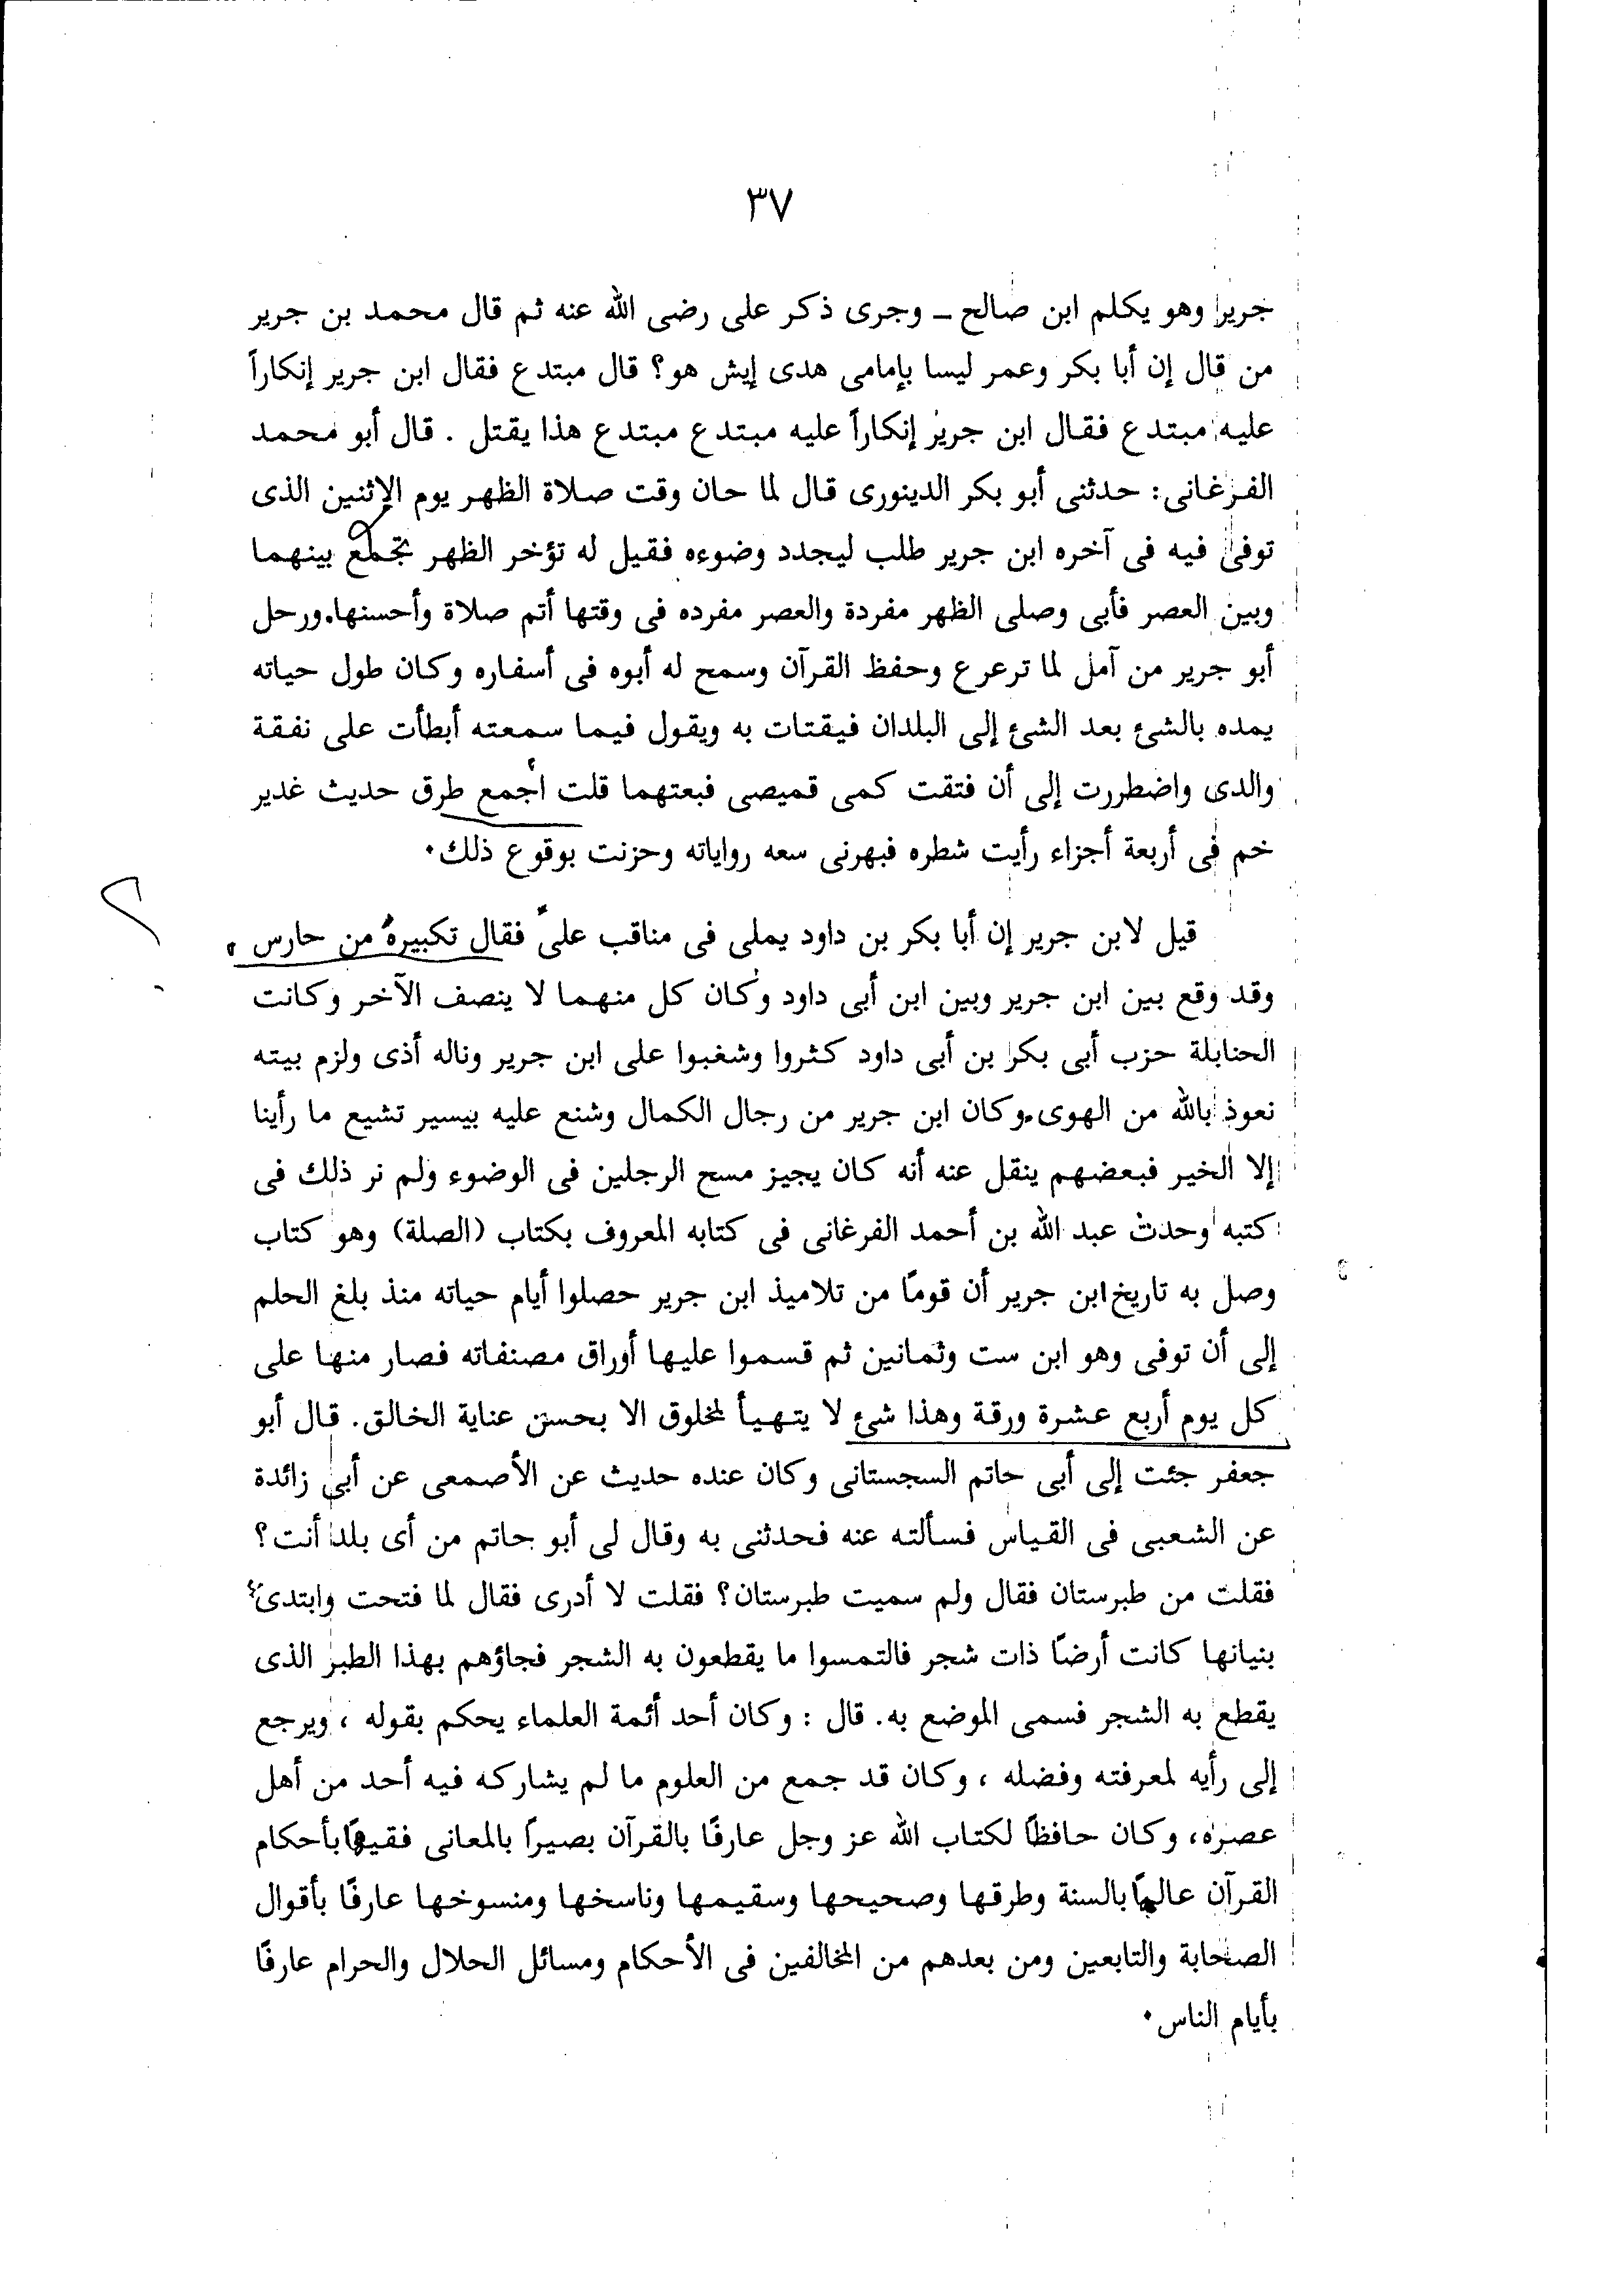 ٣٧
جرير وهو يكلم ابن صالح ــ وجرى ذكر على رضى الله عنه ثم قال محمد بن جرير
من قال إن أبا بكر وعمر ليسا بإمامى هدى إيش هو؟ قال مبتدع فقال ابن جرير إنكاراً
عليه مبتدع فقال ابن جرير إنكاراً عليه مبتدع مبتدع هذا يقتل . قال أبو محمد
الفرغانى: حدثنى أبو بكر الدينورى قال لما حان وقت صلاة الظهر يوم الإثنين الذى
توفى فيه فى آخره ابن جرير طلب ليجدد وضوءه فقيل له تؤخر الظهر تجمع بينهما
وبين العصر فأبى وصلى الظهر مفردة والعصر مفرده فى وقتها أتم صلاة وأحسنها. ورحل
أبو جرير من آمل لما ترعرع وحفظ القرآن وسمح له أبوه فى أسفاره وكان طول حياته
يمده بالشئ بعد الشئ إلى البلدان فيقتات به ويقول فيما سمعته أبطأت على نفقة
والدى واضطررت إلى أن فتقت كمى قميصى فبعتهما قلت أجمع طرق حديث غدير
خم فى أربعة أجزاء رأيت شطره فبهرنى سعه رواياته وحزنت بوقوع ذلك.
قيل لابن جرير إن أبا بكر بن داود يملى فى مناقب علىّ فقال تكبيرةُ من حارس .
وقد وقع بين ابن جرير وبين ابن أبى داود وكان كل منهما لا ينصف الآخر وكانت
الحنابلة حزب أبى بكر بن أبى داود كثروا وشغبوا على ابن جرير وناله أذى ولزم بيته
نعوذ بالله من الهوى. وكان ابن جرير من رجال الكمال وشنع عليه بيسير تشيع ما رأينا
إلا الخير فبعضهم ينقل عنه أنه كان يجيز مسح الرجلين فى الوضوء ولم نر ذلك فى
كتبه وحدث عبد الله بن أحمد الفرغانى فى كتابه المعروف بكتاب (الصلة) وهو كتاب
وصل به تاريخ ابن جرير أن قومًا من تلاميذ ابن جرير حصلوا أيام حياته منذ بلغ الحلم
إلى أن توفى وهو ابن ست وثمانين ثم قسموا عليها أوراق مصنفاته فصار منها على
كل يوم أربع عشرة ورقة وهذا شئ لا يتهيأ لمخلوق الا بحسن عناية الخالق. قال أبو
جعفر جئت إلى أبى حاتم السجستانى وكان عنده حديث عن الأصمعى عن أبى زائدة
عن الشعبى فى القياس فسألته عنه فحدثنى به وقال لى أبو حاتم من أى بلد أنت؟
فقلت من طبرستان فقال ولم سميت طبرستان؟ فقلت لا أدرى فقال لما فتحت وابتدئ
بنيانها كانت أرضًا ذات شجر فالتمسوا ما يقطعون به الشجر فجاؤهم بهذا الطبر الذى
يقطع به الشجر فسمى الموضع به. قال : وكان أحد أئمة العلماء يحكم بقوله ، ويرجع
إلى رأيه لمعرفته وفضله ، وكان قد جمع من العلوم ما لم يشاركه فيه أحد من أهل
عصره، وكان حافظًا لكتاب الله عز وجل عارفًا بالقرآن بصيرًا بالمعانى فقيهًا بأحكام
القرآن عالمًا بالسنة وطرقها وصحيحها وسقيمها وناسخها ومنسوخها عارفًا بأقوال
الصحابة والتابعين ومن بعدهم من المخالفين فى الأحكام ومسائل الحلال والحرام عارفًا
بأيام الناس.